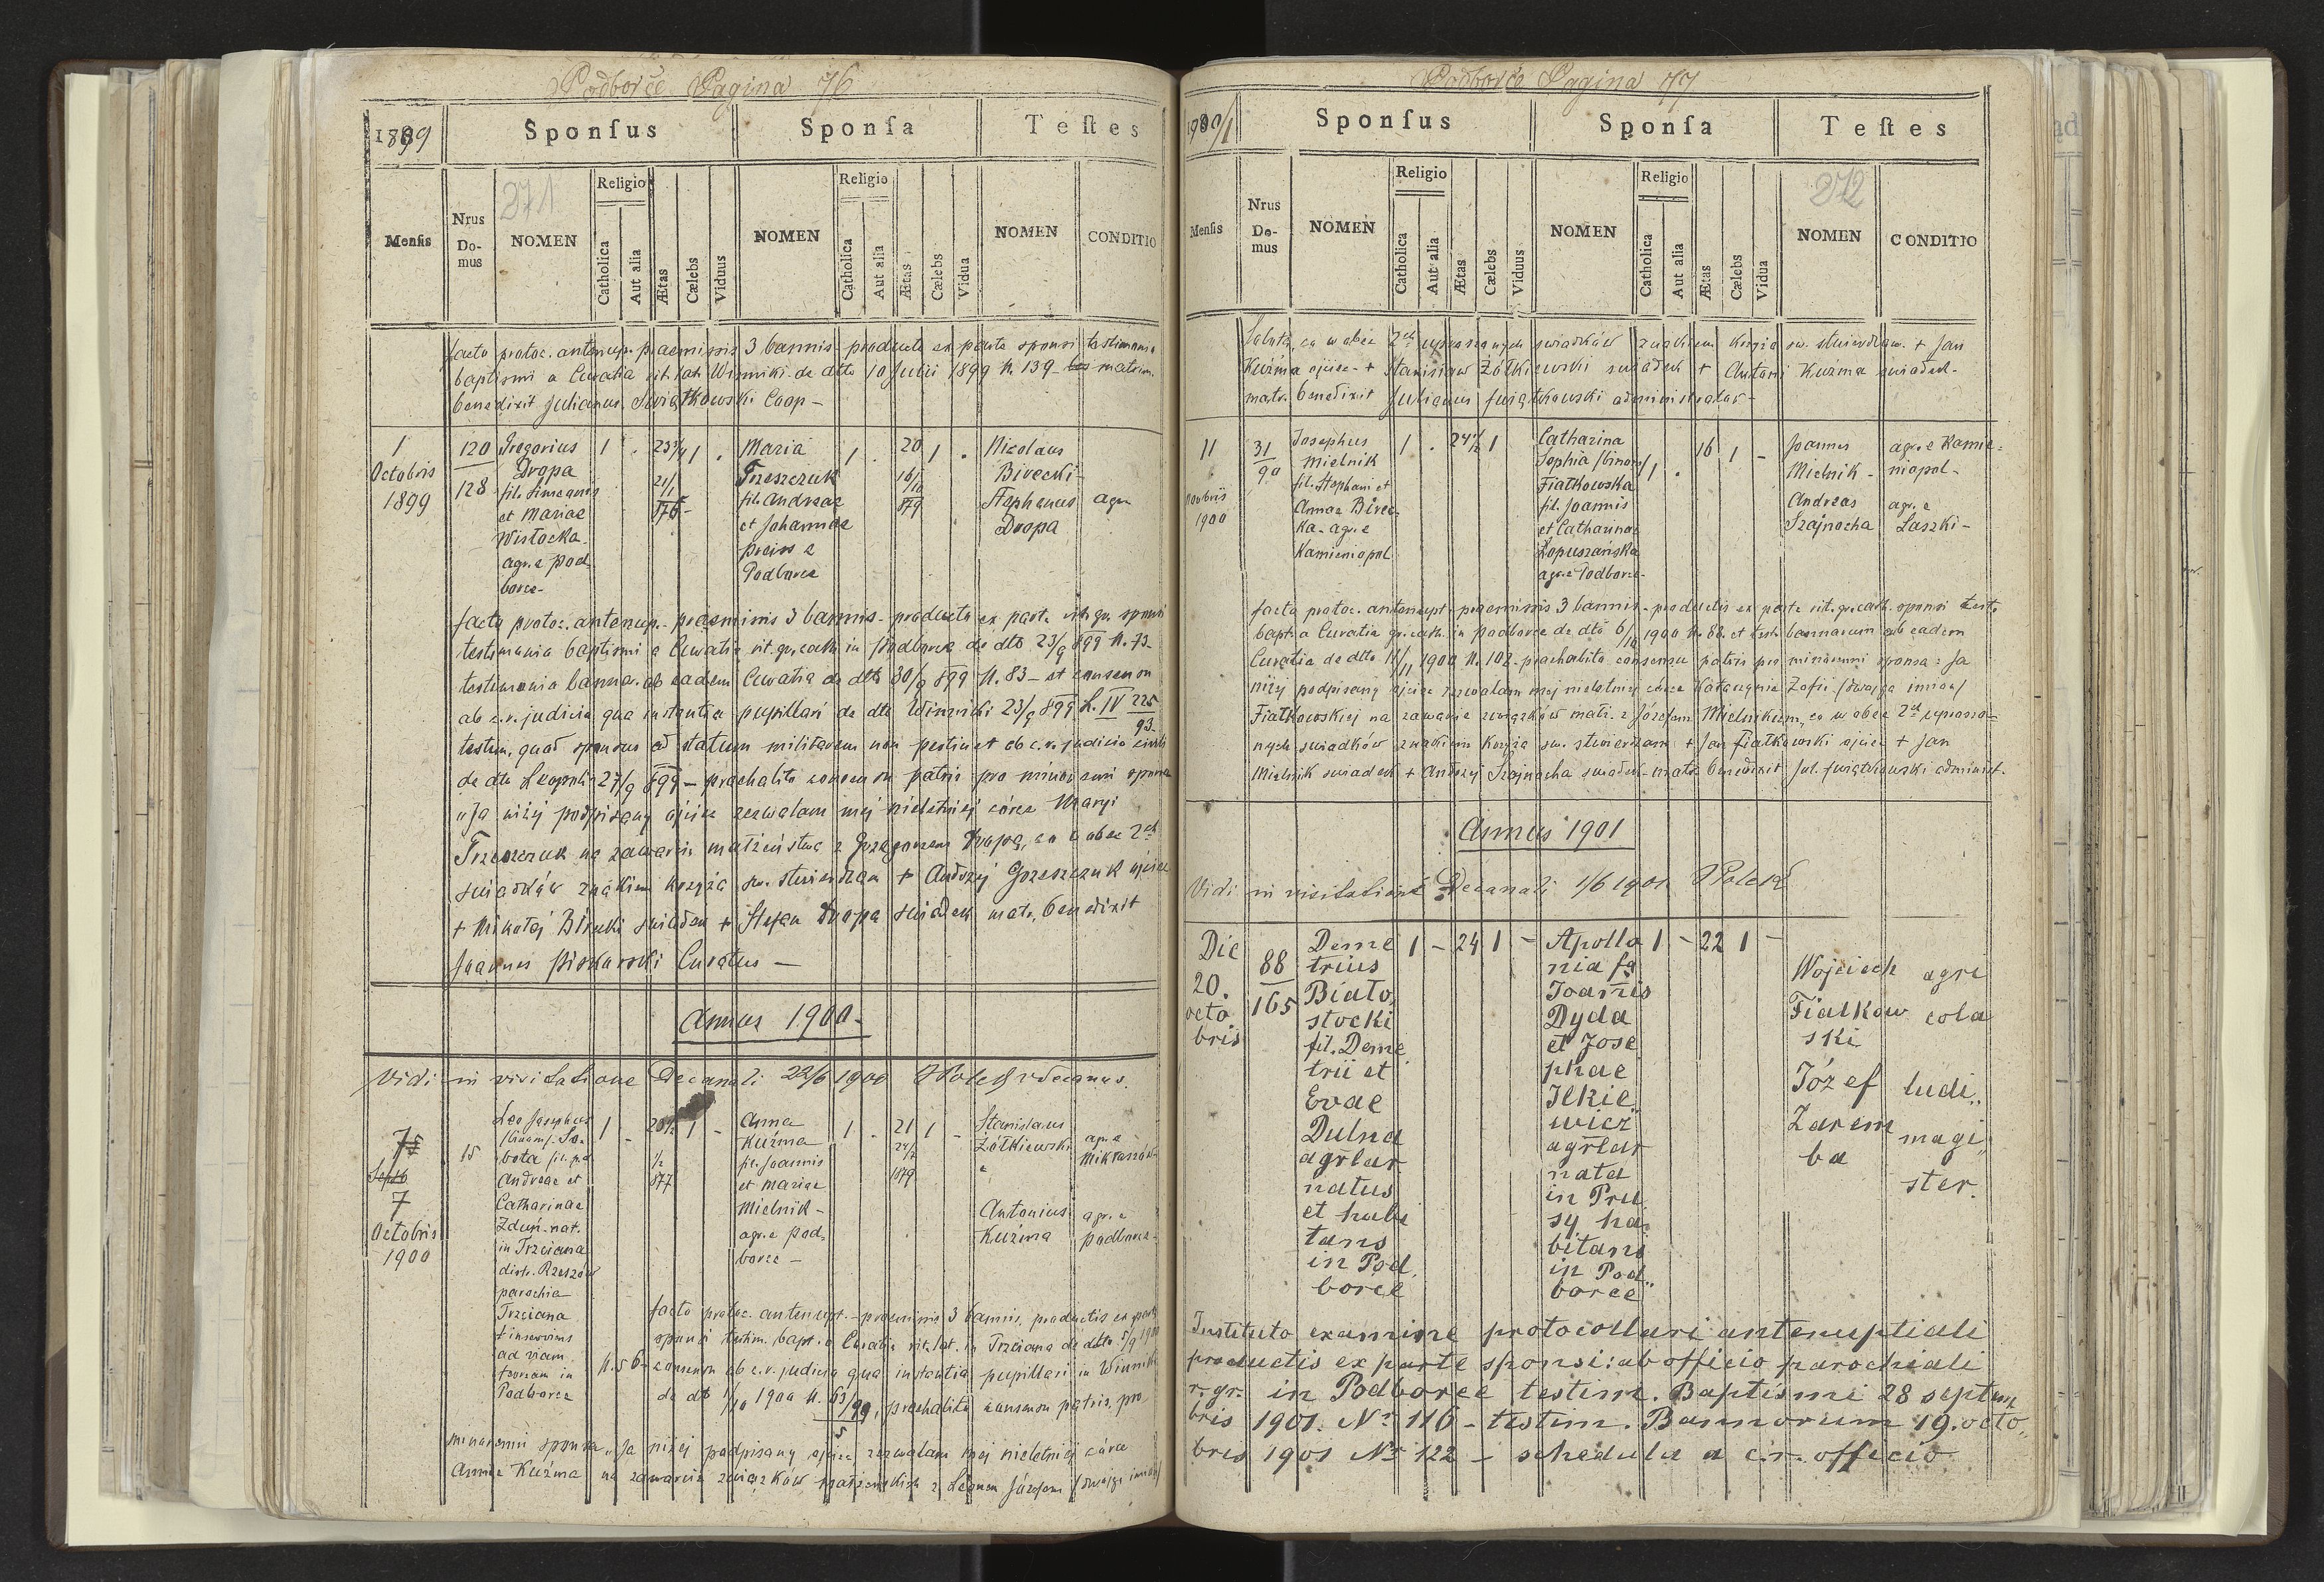 Podborce Pagina 76
1899
Sponsus
Sponsa
Testes
271
Mensis
Nrus Domus
NOMEN
Religio
Catholica
Aut alia
Ætas
Cælebs
Viduus
NOMEN
Religio
Catholica
Aut alia
Ætas
Cælebs
Vidua
NOMEN
CONDITIO
facto protoc. antenup. praemissis 3 bannis producto ex parte sponsi testimonio
baptismi a Curatia rit. lat. Winniki de dto 10 Julii 1899 N. 139 matrim.
benedixit Julianus Swiątkowski Coop –
1
Octobris
1899
120
128
Gregorius
Dropa
fil. Simeonis
et Mariae
Wistocka
agr. e Pod
borce-
1
23 3/4
21/1
876
1
Maria
Trzeszczuk
fil. Andreae
et Johannae
Preiss e
Podborce
1
20
16/10
879
1
Nicolaus
Birecki
Stephanus
Dropa
agr.
facto protoc. antenup. praemissis 3 bannis producto ex part. rit. gr. sponsi
testimonio baptismi a Curatia rit. gr. cath. in Podborce de dto 23/9 899 N. 73
testimonio bannor. ab eadem Curatia de dto 30/9 899 N. 83 – et consensu
ab c.r. judicio qua instantia pupillari de dto Winniki 23/9 899 L. IV 225/93
testim. quod sponsus ad statum militarem non pertinet ab c.r. judicio civili
de dto Leopoli 27/9 899 – praehabito consensu patris pro minorenni sponsa
"Ja niżej podpisany ojciec zezwalam mej nieletniej córce Maryi
Trzeszczuk na zawarcie małżeństwa z Grzegorzem Dropą, co w obec 2ch
świadków znakiem krzyża św. stwierdzam + Andrzej Grzeszczuk ojciec
+ Mikołaj Birecki świadek + Stefan Dropa świadek matr. benedixit
Joannes Piskorski Curatus –
Annus 1900.
Vidi in visitatione Decanali 22/6 1900
75
Septb
7
Octobris
1900
15
Leo Josephus
/binom/ So-
bota fil. p.d.
Andreae et
Catharinae
Zduń. nat.
in Trzciana
distr. Rzeszów
parochia
Trzciana
inserviens
ad viam
ferream in
Podborce
1
1/2
877
1
Anna
Kuźma
fil. Joannis
et Mariae
Mielnik –
agr. e Pod
borce –
1
21
24/2
1879
1
Stanislaus
Żółkiewski
agr. e
Antonius
Kuźma
agr. e
Podborce-
facto protoc. antenupt. praemissis 3 bannis, productis ex parte
sponsi testim. bapt. a Curatia rit. lat. in Trzciana de dato 5/9 1900
N. 56 – consensu ab c.r. judicio qua instantia pupillari in Winniki
de dto 1/10 1900 N. 63/99, praehabito consensu patris pro
5
minorenni sponsa "Ja niżej podpisany ojciec zezwalam mej nieletniej córce
Annie Kuźma na zawarcie związków małżeńskich z Leonem Józefem /dwojga imion/
Podborce Pagina 77
1900/1
Sponsus
Sponsa
Testes
272
Mensis
Nrus Domus
NOMEN
Religio
Catholica
Aut alia
Ætas
Cælebs
Viduus
NOMEN
Religio
Catholica
Aut alia
Ætas
Cælebs
Vidua
NOMEN
CONDITIO
Sobotą, co w obec 2ch uproszonych świadków znakiem krzyża św. stwierdzam. + Jan
Kuźma ojciec + Stanisław Żółkiewski świadek + Antoni Kuźma świadek.
matr. benedixit Julianus Swiątkowski administrator –
11
Novbris
1900
31
90
Josephus
Mielnik
fil. Stephani et
Annae Birec-
ka – agr. e
Kamieniopol
1
24 1/2
1
Catharina
Sophia /binom/
Fiałkowska
fil. Joannis
et Catharinae
Łopuszańska
agr. e Podborce-
1
16
1
Joannes
Mielnik –
Andreas
Szajnocha
agr. e Kamie-
niopol –
agr. e
Laszki –
facto protoc. antenupt. praemissis 3 bannis – productis ex parte rit. gr. cath. sponsi test.
bapt. a Curatia gr. cath. in Podborce de dto 6/10 1900 N. 88. et test. bannorum ab eadem
Curatia de dto 11/11 1900 N. 102 – praehabito consensu patris pro minorenni sponsa: Ja
niżej podpisany ojciec zezwalam mej nieletniej córce Katarzynie Zofii /dwojga imion/
Fiałkowskiej na zawarcie związków małż. z Józefem Mielnikiem, co w obec 2ch uproszo-
nych świadków znakiem krzyża św. stwierdzam + Jan Fiałkowski ojciec + Jan
Mielnik świadek + Andrzej Szajnocha świadek – matr. benedixit Jul. Swiątkowski administ.
Annus 1901
Vidi in visitatione Decanali 1/6 1901
Die
20.
octo
bris
88
165
Deme
trius
Biało,,
stocki
fil. Deme
trii et
Evae
Dulna
agrlar
natus
et habi
tans
in Pod,
borce
1
–
24
1
–
Apollo
nia fa
Joannis
Dyda
et Jose
phae
Ilkie,,
wicz
agrlar
nata
in Pru
sy ha,,
bitans
in Pod,,
borce
1
–
22
1
–
Wojciech
Fialkow
ski
agri
cola
Józef
Zarem
ba
ludi,,
magi,,
ster.
Instituto examine protocollari antenuptiali
productis ex parte sponsi: ab officio parochiali
r. gr. in Podborce testim. Baptismi 28 septem
bris 1901. Nr 116 – testim. Bannorum 19. octo,,
bris 1901 Nr 122 – schedula a c. r. officio